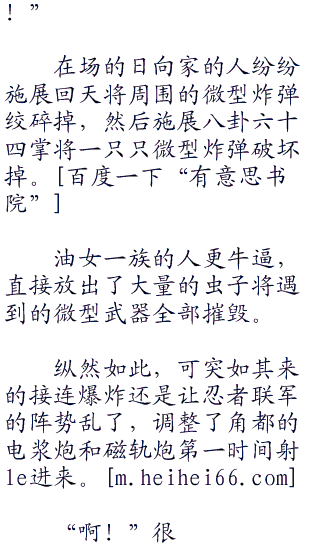 ！”
在场的日向家的人纷纷
施展回天将周围的微型炸弹
绞碎掉，然后施展八卦六十
四掌将一只只微型炸弹破坏
掉。[百度一下“有意思书
院”]
油女一族的人更牛逼，
直接放出了大量的虫子将遇
到的微型武器全部摧毁。
纵然如此，可突如其来
的接连爆炸还是让忍者联军
的阵势乱了，调整了角都的
电浆炮和磁轨炮第一时间射
le进来。[m.heihei66.com]
“啊！”很